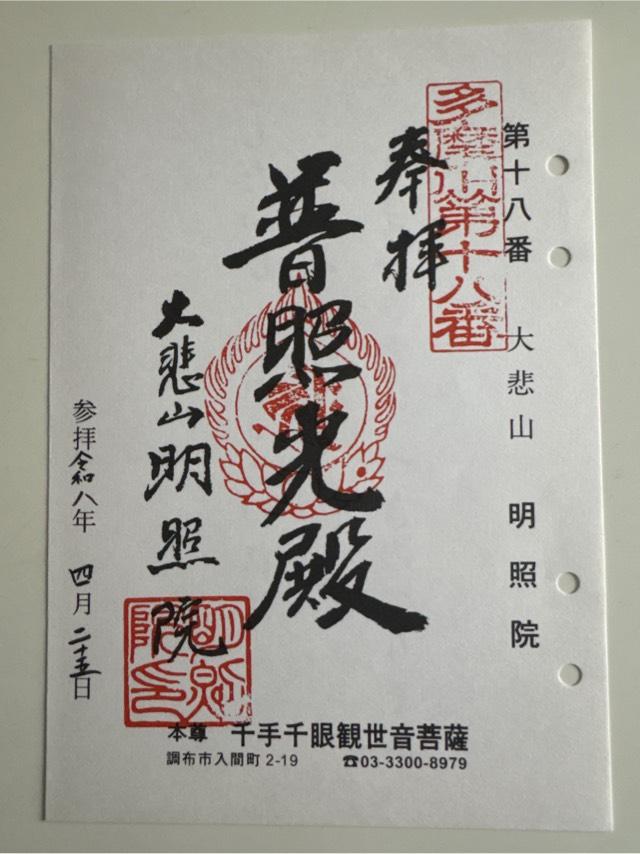 第十八番 大悲山 明照院
多摩川第十八番
奉拝
普照光殿
大悲山明照院
明照院印
参拝令和八年 四月二十五日
本尊 千手千眼観世音菩薩
調布市入間町2-19 ☎03-3300-8979